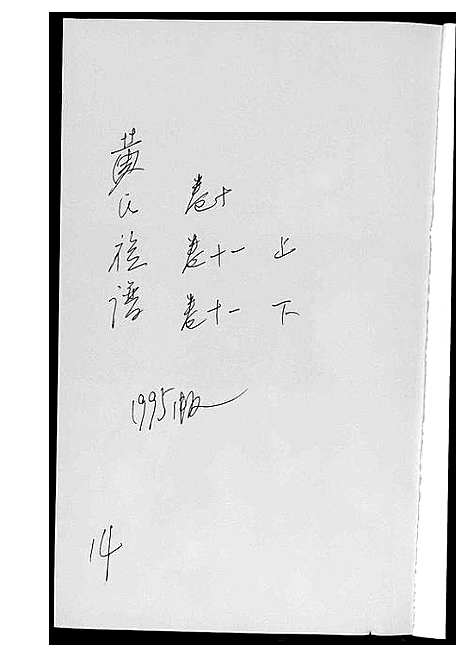 黄氏族谱
卷十
卷十一 上
卷十一 下
1995版
14